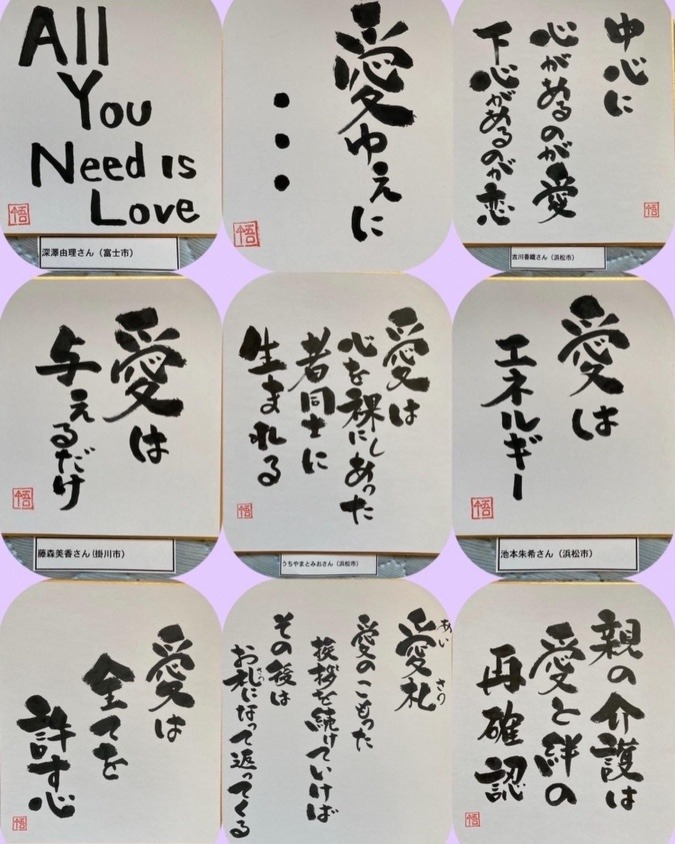 All
You
Need is
Love
悟
深澤由理さん（富士市）
愛ゆえに
・・・
悟
中心に
心があるのが愛
下心があるのが恋
悟
吉川香織さん（浜松市）
愛は
与えるだけ
悟
藤森美香さん（掛川市）
愛は
心を裸にしあった
者同士に
生まれる
悟
うちやまとみおさん（浜松市）
愛は
エネルギー
悟
池本朱希さん（浜松市）
愛は
全てを
許す心
悟
愛札
あい
さつ
愛のこもった
挨拶を続けていけば
その後は
お札になって返ってくる
さつ
親の介護は
愛と絆の
再確認
悟